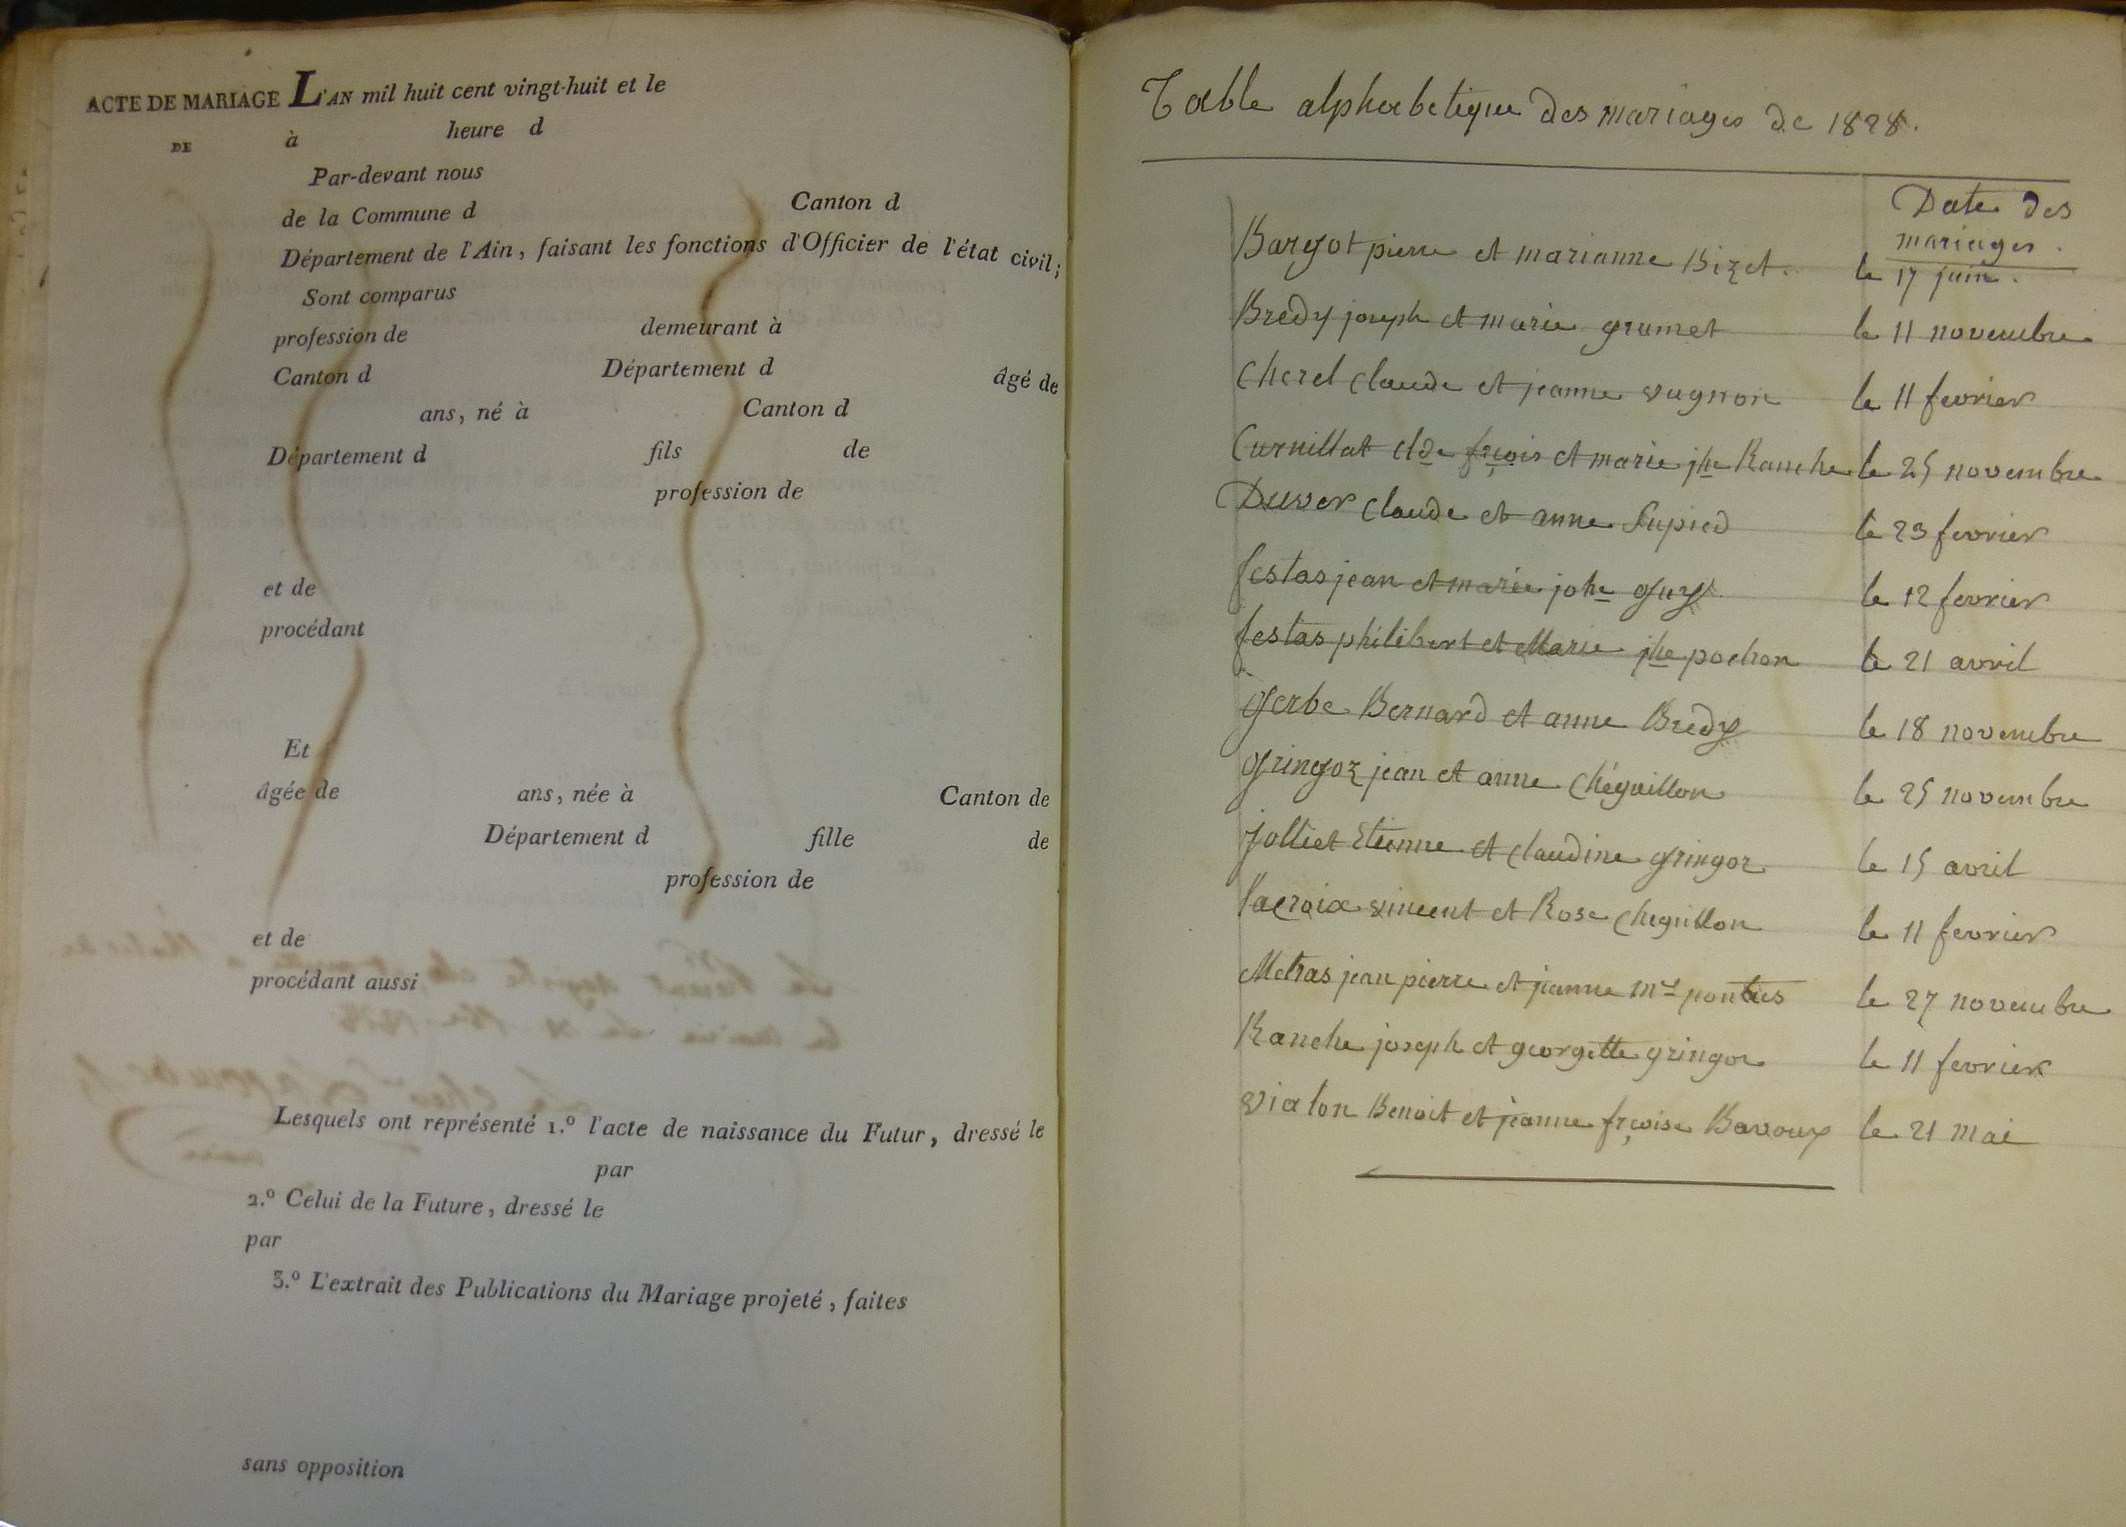 ACTE DE MARIAGE L'AN mil huit cent vingt-huit et le
DE à heure d
Par-devant nous
de la Commune d Canton d
Département de l'Ain, faisant les fonctions d'Officier de l'état civil;
Sont comparus
profession de demeurant à
Canton d Département d âgé de
ans, né à Canton d
Département d fils de
profession de
et de
procédant
Et
âgée de ans, née à Canton de
Département d fille de
profession de
et de
procédant aussi
Lesquels ont représenté 1.º l'acte de naissance du Futur, dressé le
par
2.º Celui de la Future, dressé le
par
3.º L'extrait des Publications du Mariage projeté, faites
sans opposition
Table alphabetique des mariages de 1828.
Date des
mariages.
Bargot pierre et marianne Bizet. le 17 juin.
Bredy joseph et marie grumet le 11 novembre.
Cherel Claude et jeanne vugnon le 11 fevrier
Curnillat clde frçois et marie jhe Ranche le 25 novembre
Duver Claude et anne Supied le 23 fevrier
festas jean et marie johe guy le 12 fevrier
festas philibert et Marie jhe pochon le 21 avril
Gerbe Bernard et anne Bredy le 18 novembre
gringoz jean et anne Chéguillon le 25 novembre
jolliet Etienne et claudine gringoz le 15 avril
lacroix vincent et Rose cheguillon le 11 fevrier
Metras jean pierre et jeanne mie pontus le 27 novembre
Ranche joseph et georgette gringoz le 11 fevrier
vialon Benoit et jeanne frçoise Bavoux le 21 mai